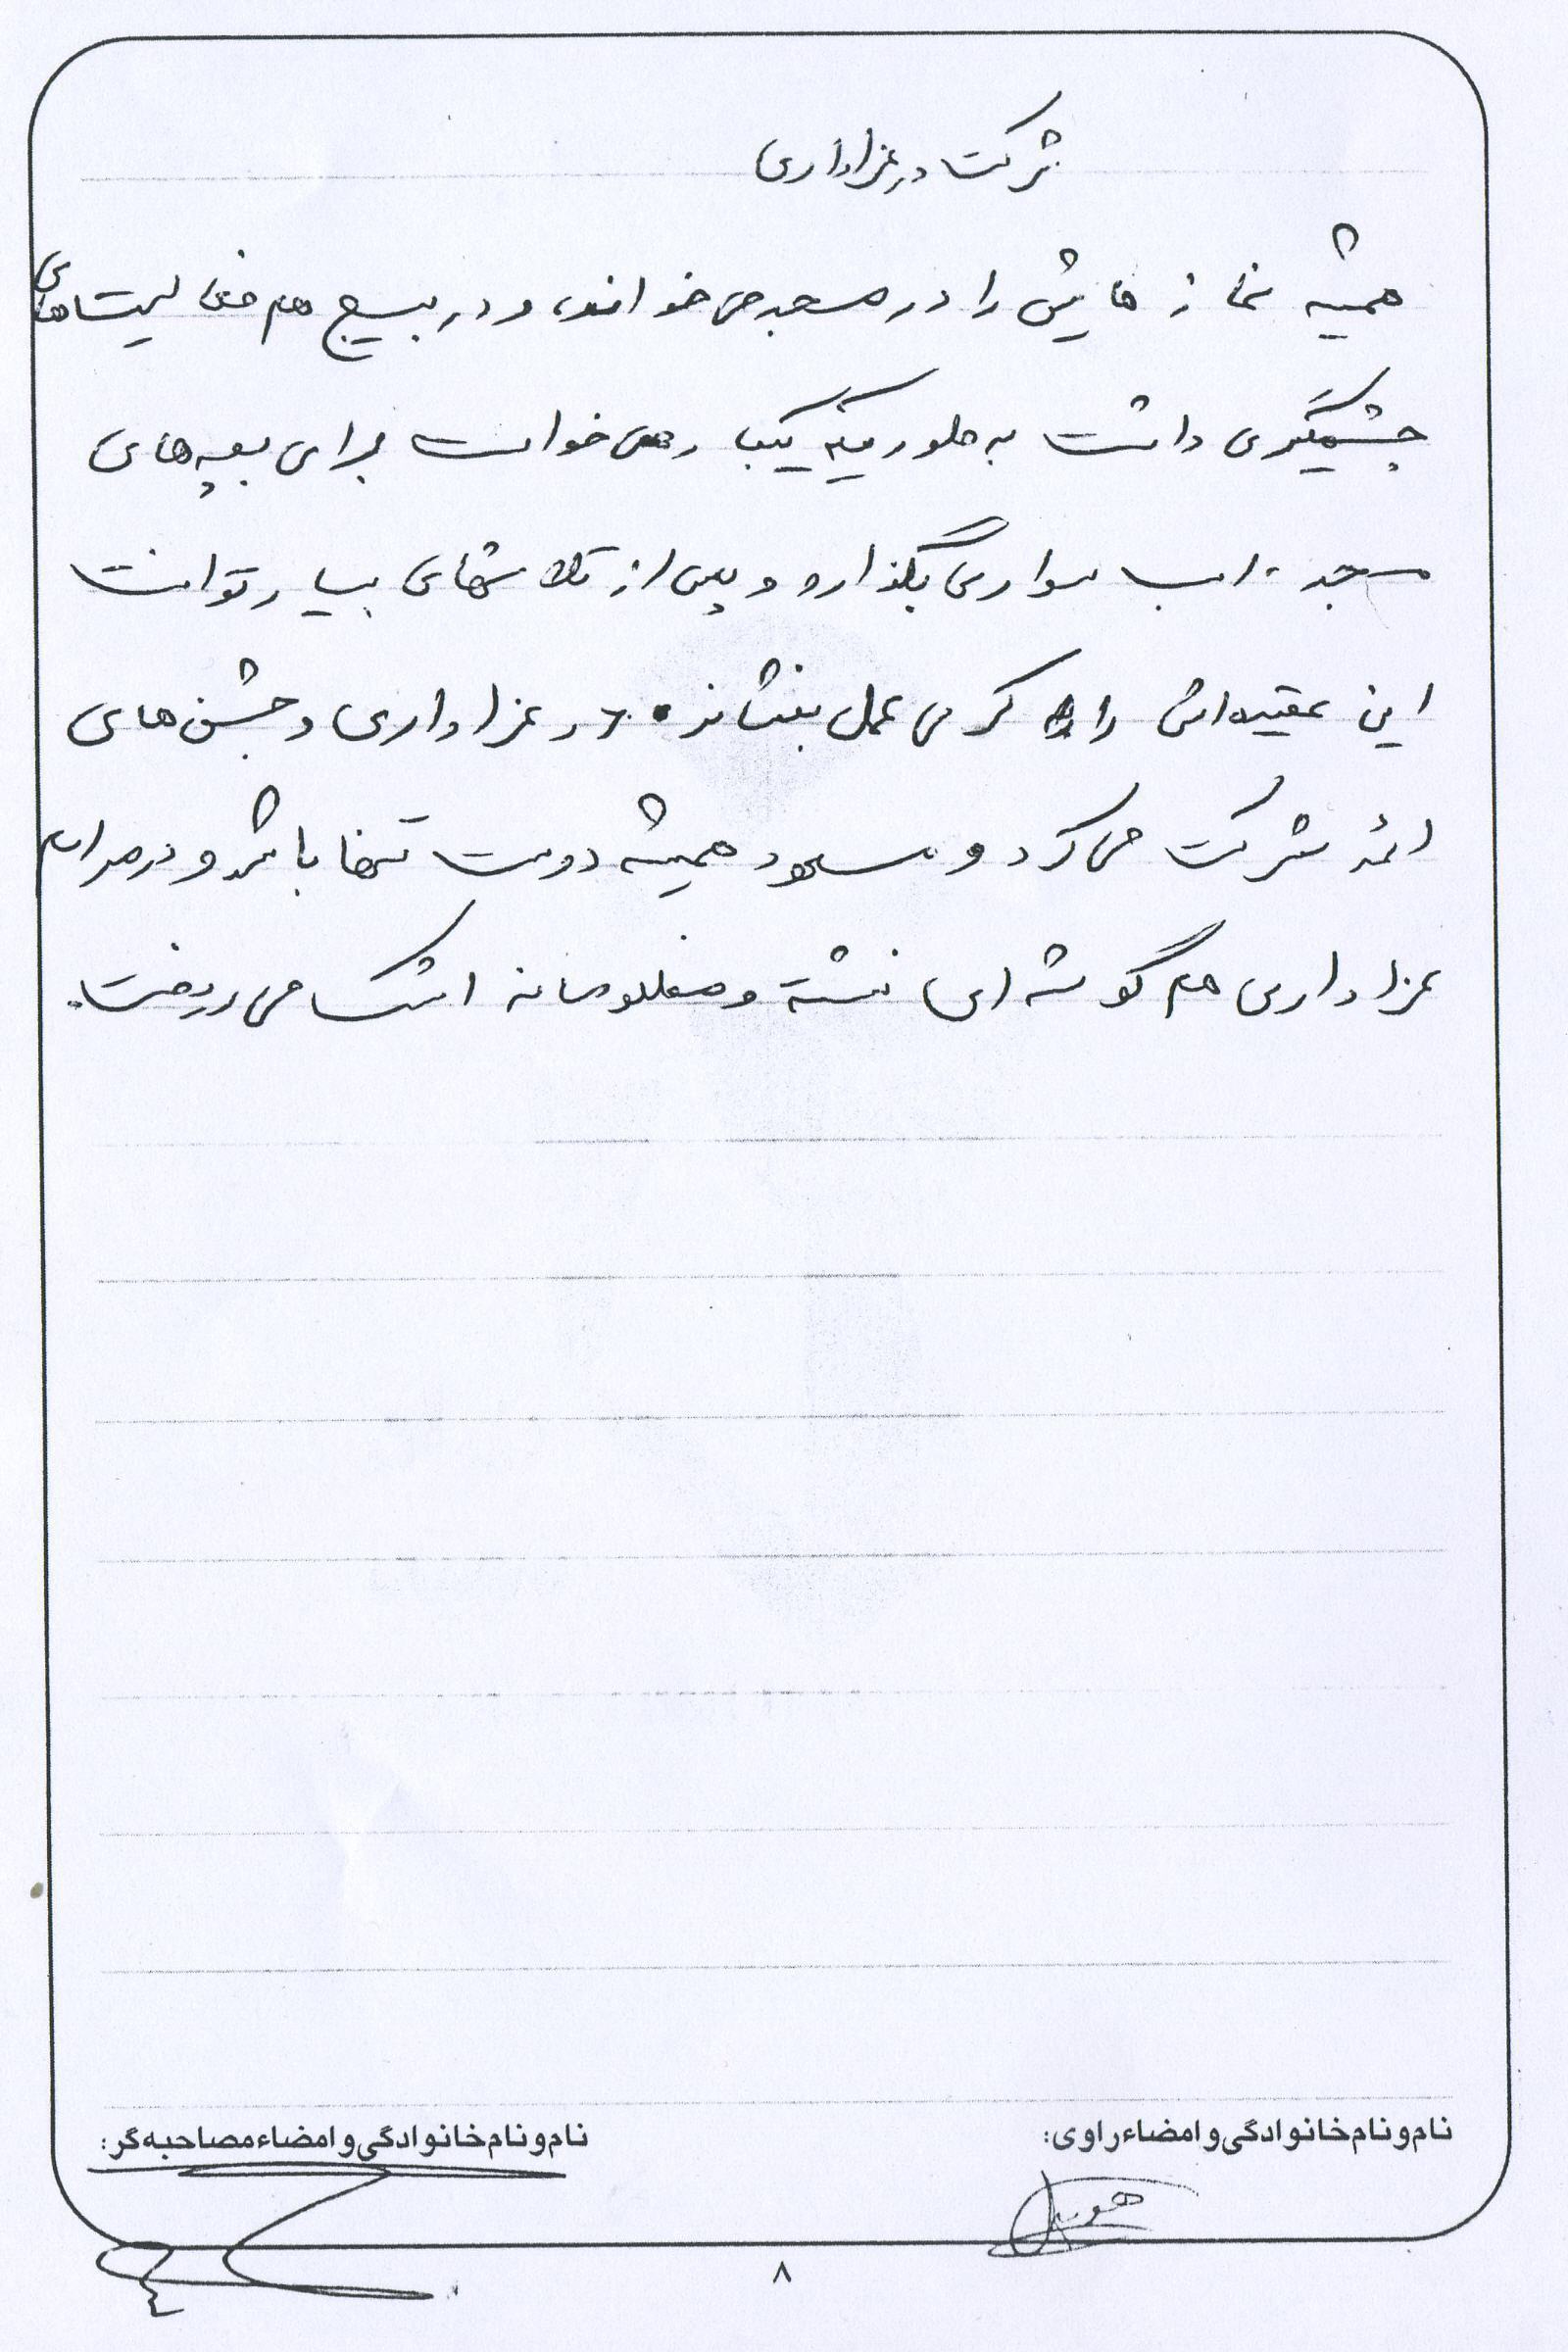 شرکت در عزاداری
همیشه نمازهایش را در مسجد می خواند، و در بسیج هم فعالیت های
چشمگیری داشت به طوریکه یکبار می خواست برای بچه های
مسجد، اسب سواری بگذارد و پس از تلاشهای بسیار توانست
این عقیده اش را به کرسی عمل بنشاند. در عزاداری و جشن های
ائمه شرکت می کرد و مسعود همیشه دوست تنها باشد و در مراسم
عزاداری هم گوشه ای نشسته و مظلومانه اشک می ریخت.
نام و نام خانوادگی و امضاء راوی:
نام و نام خانوادگی و امضاء مصاحبه گر:
۸